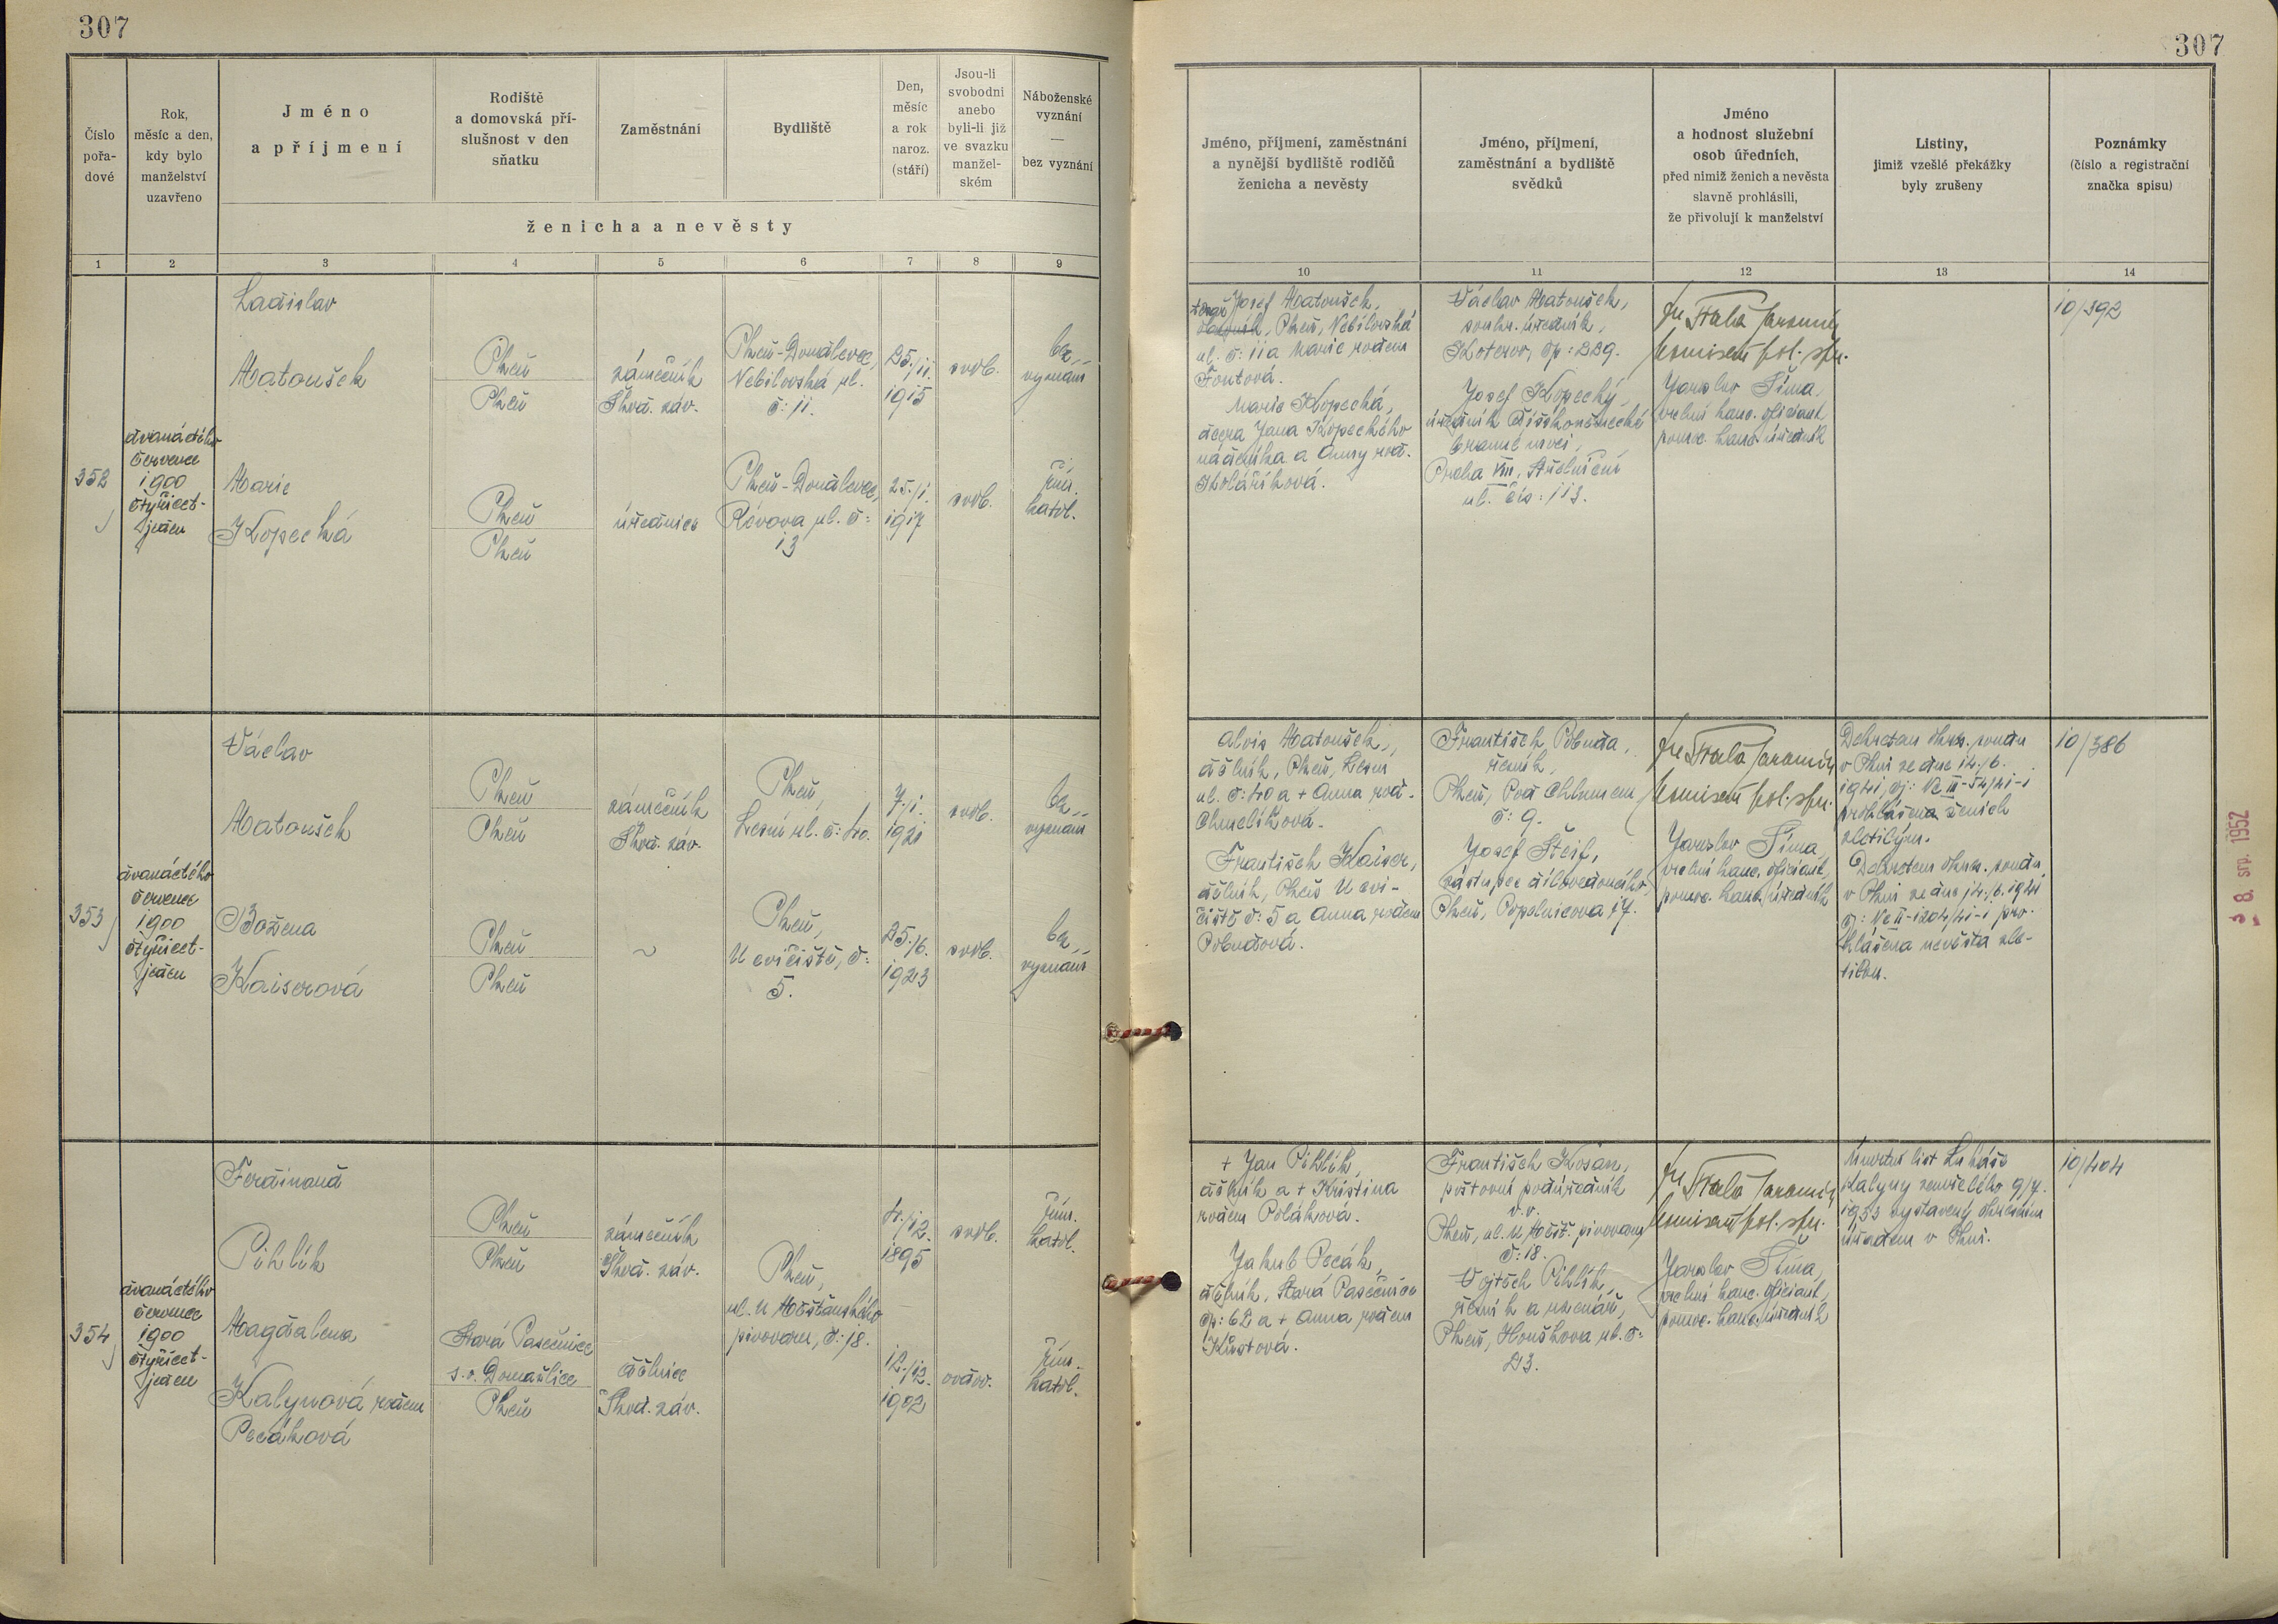 307
307
Číslo
pořa-
dové
Rok,
měsíc a den,
kdy bylo
manželství
uzavřeno
Jméno
a příjmení
Rodiště
a domovská pří-
slušnost v den
sňatku
Zaměstnání
Bydliště
Den,
měsíc
a rok
naroz.
(stáří)
Jsou-li
svobodni
anebo
byli-li již
ve svazku
manžel-
ském
Náboženské
vyznání
—
bez vyznání
ženicha a nevěsty
Jméno, příjmení, zaměstnání
a nynější bydliště rodičů
ženicha a nevěsty
Jméno, příjmení,
zaměstnání a bydliště
svědků
Jméno
a hodnost služební
osob úředních,
před nimiž ženich a nevěsta
slavně prohlásili,
že přivolují k manželství
Listiny,
jimiž vzešlé překážky
byly zrušeny
Poznámky
(číslo a registrační
značka spisu)
1 2 3 4 5 6 7 8 9
10 11 12 13 14
352
dvanáctého
července
1900
čtyřicet-
jeden
Ladislav
Matoušek
Plzeň
Plzeň
zámečník
Škod. záv.
Plzeň-Doudlevce,
Nebílovská ul.
č: 11.
25./11.
1915
svob.
bez
vyznání
Marie
Kopecká
Plzeň
Plzeň
úřednice
Plzeň-Doudlevce,
Révova ul. č:
13
25./1.
1917
svob.
řím.
katol.
Josef Matoušek,
Plzeň, Nebílovská
ul. č: 11 a Marie rodem
Foutová.
Marie Kopecká,
dcera Jana Kopeckého
nádeníka a Anny rod.
Kolaříková.
Václav Matoušek,
soukr. úředník,
Koterov, čp: 229.
Josef Kopecký,
úředník
branné moci,
Praha VIII, Střelničná
ul. čís: 113.
Stala Jaromír
komisař pol. spr.
Jaroslav Šíma,
vrchní kanc. oficiant
pomoc. kanc. úředník
10/392
353
dvanáctého
července
1900
čtyřicet-
jeden
Václav
Matoušek
Plzeň
Plzeň
zámečník
Škod. záv.
Plzeň,
Lesní ul. č: 40.
7./1.
1921
svob.
bez
vyznání
Božena
Kaiserová
Plzeň
Plzeň
~
Plzeň,
U cvičiště, č:
5.
25./6.
1923
svob.
bez
vyznání
Alois Matoušek,
dělník, Plzeň, Lesní
ul. č: 40 a + Anna rod.
Chmelíková.
František Kaiser,
dělník, Plzeň U cvi-
čiště č: 5 a Anna rodem
Pobudová.
František Pobuda,
řezník,
Plzeň, Pod Chlumem
č: 9.
Josef Šteif,
zástupce dílovedoucího,
Plzeň, Popelnicova 17.
Stala Jaromír
komisař pol. spr.
Jaroslav Šíma,
vrchní kanc. oficiant,
pomoc. kanc. úředník
Dekretem okres. soudu
v Plzni ze dne 14./6.
1941, čj: Nc III-54/41-1
prohlášen ženich
zletilým.
Dekretem okres. soudu
v Plzni ze dne 14./6. 1941
čj: Nc II-1204/41-1 pro-
hlášena nevěsta zle-
tilou.
10/386
354
dvanáctého
července
1900
čtyřicet-
jeden
Ferdinand
Pihlík
Plzeň
Plzeň
zámečník
Škod. záv.
Plzeň,
ul. U Měšťanského
pivovaru, č: 18.
4./12.
1895
svob.
řím.
katol.
Magdalena
Kalynová rodem
Pecáková
Stará Pasečnice
s. o. Domažlice
Plzeň
dělnice
Škod. záv.
12./12.
1902
ovdov.
řím.
katol.
+ Jan Pihlík,
dělník a + Kristina
rodem Poláková.
Jakub Pecák,
dělník, Stará Pasečnice
čp: 62 a + Anna rodem
František Kosan,
poštovní podúředník
v. v.
Plzeň, ul. U Měšť. pivovaru
č: 18.
Vojtěch Pihlík,
řezník a uzenář,
Plzeň, Houškova ul. č:
23.
Stala Jaromír
komisař pol. spr.
Jaroslav Šíma,
vrchní kanc. oficiant,
pomoc. kanc. úředník
Úmrtní list Lukáše
Kalyny zemřelého 9/7.
1933 vystavený okresním
úřadem v Plzni.
10/404
8. srp. 1952